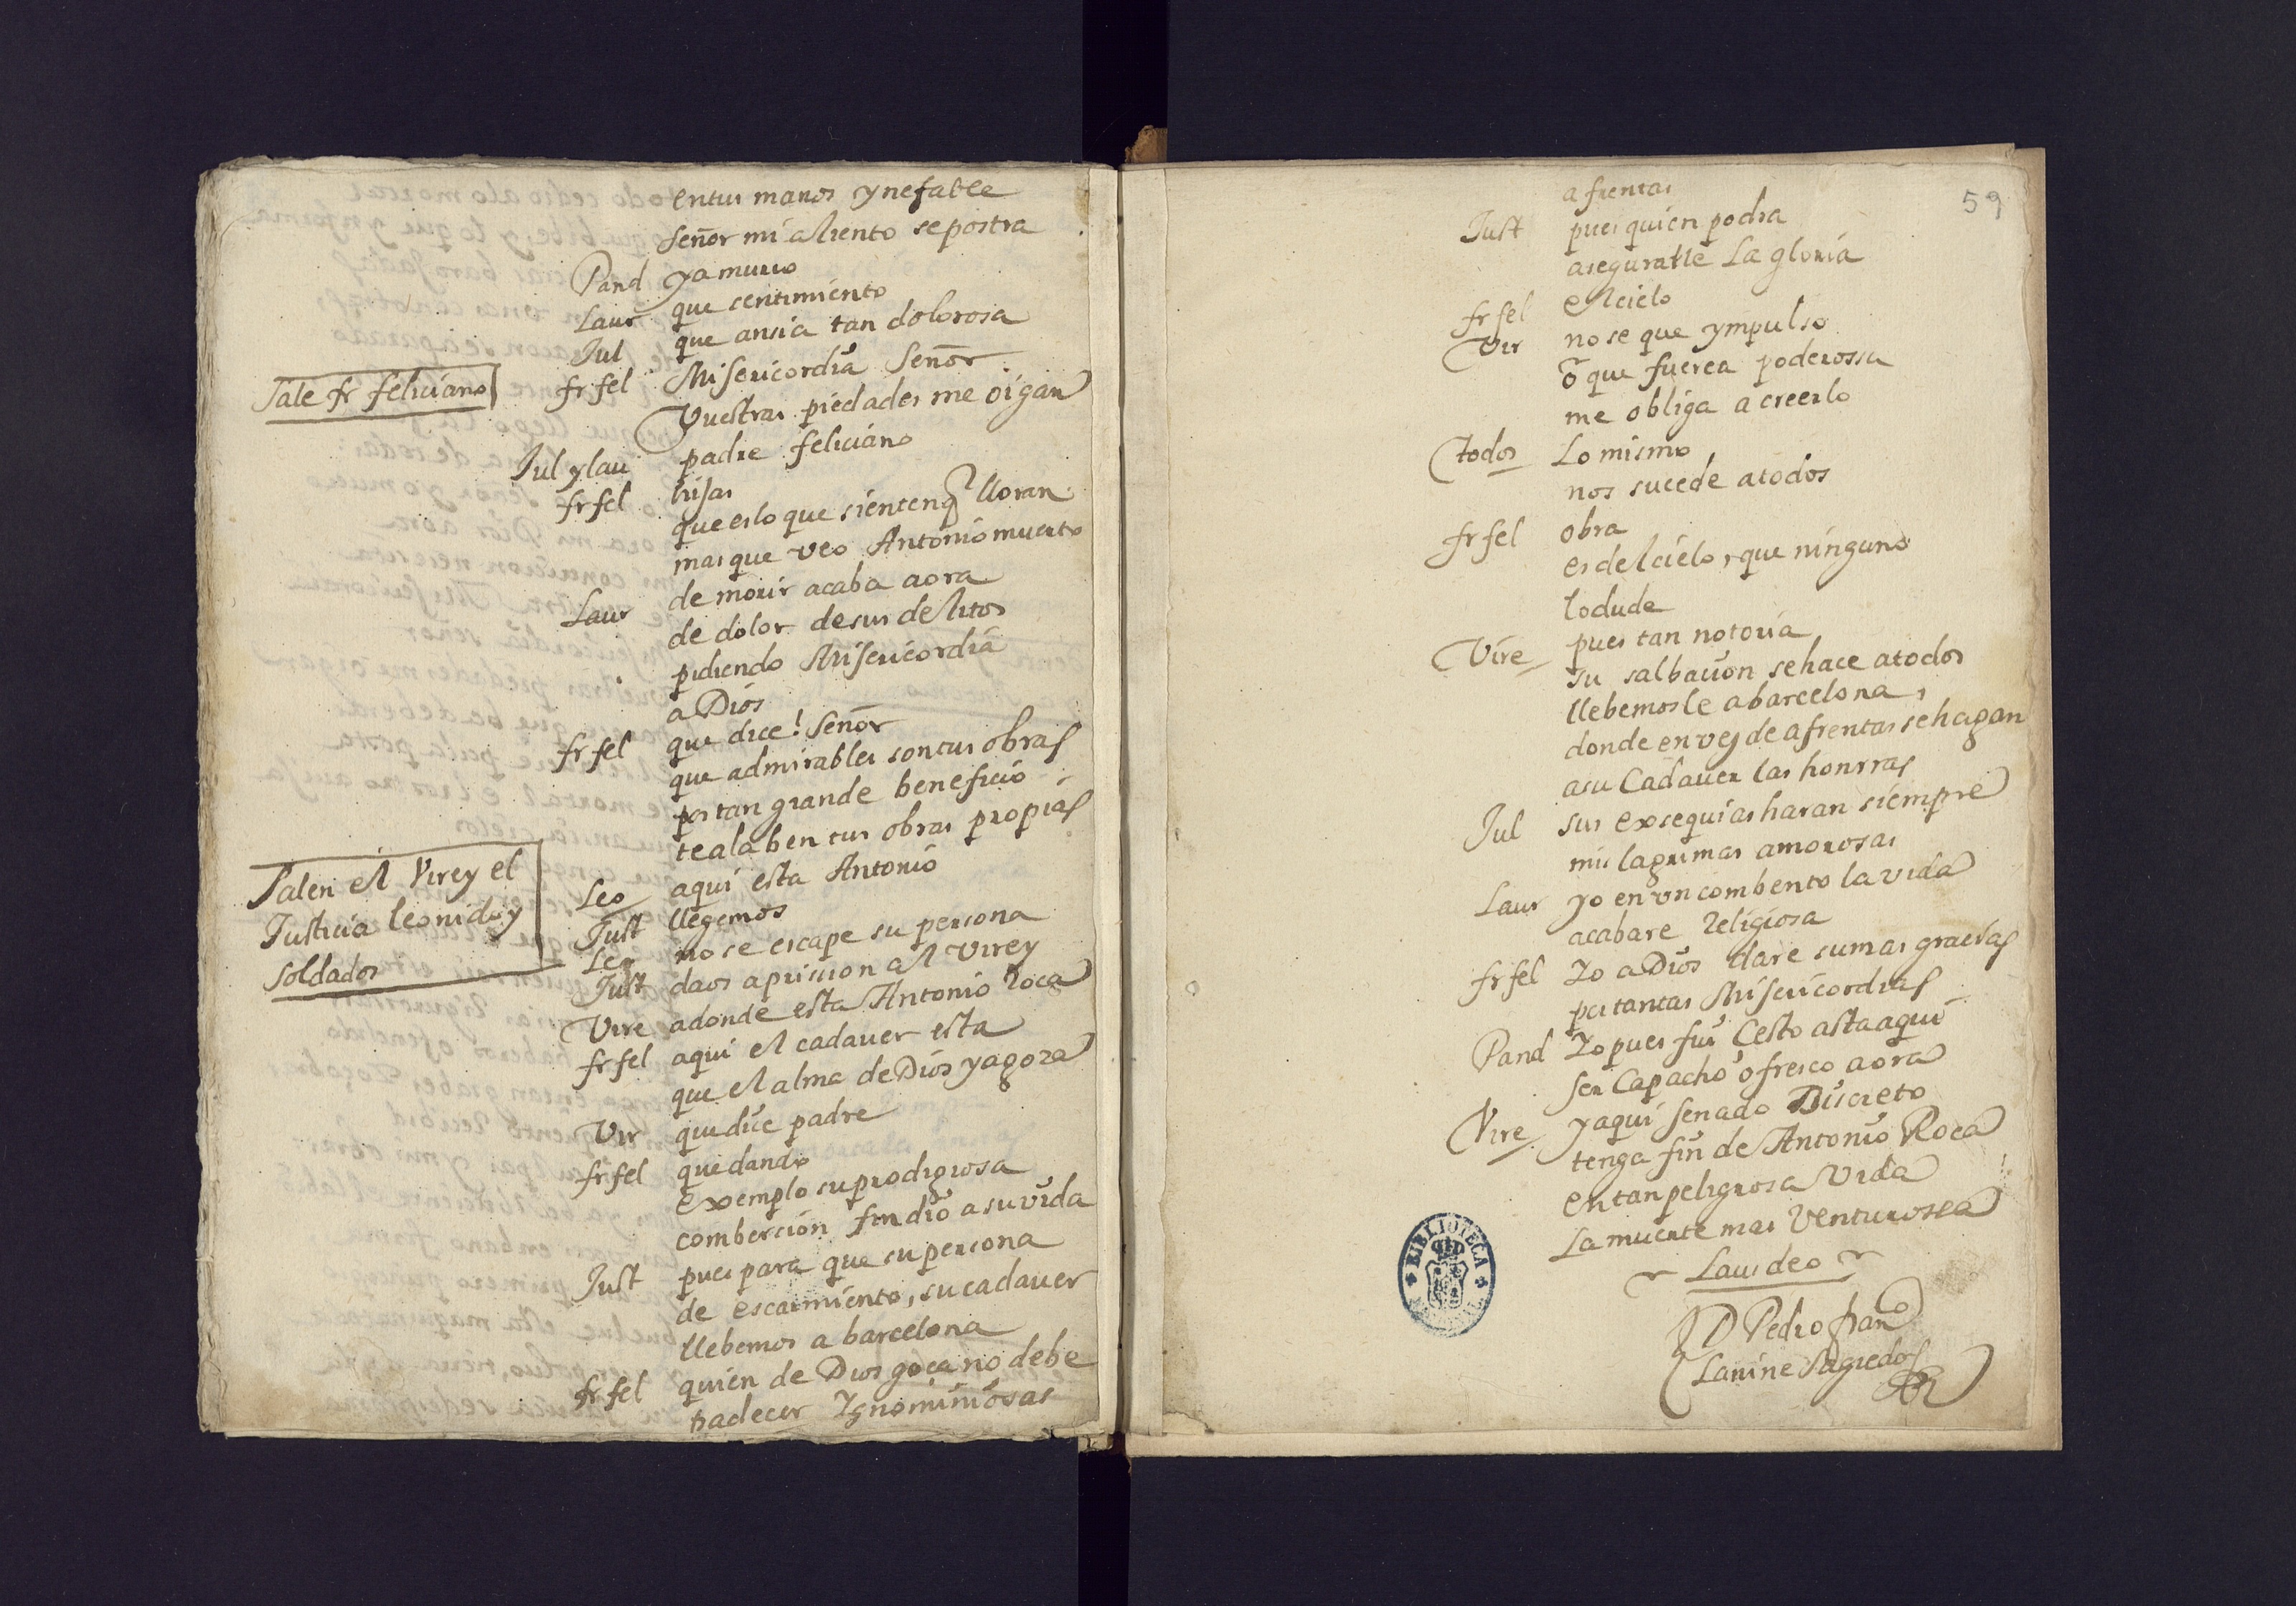 entus manos ynefable
señor mi aliento se postra
Pand ya murio
Laur que sentimiento
Jul que ansia tan dolorosa
Sale fr feliciano
fr fel Misericordia Señor
Vuestras piedades me oigan
Jul y lau padre feliciano
fr fel hijas
que es lo que sienten q̃ lloran
mas que veo Antonio muerto
Laur de morir acaba aora
de dolor de sus delitos
pidiendo Misericordia
a Dios
fr fel que dice! Señor
que admirables son tus obras
por tan grande beneficio
te alaben tus obras propias
Salen el Virey el
Justicia leonido y
soldados
Leo aqui esta Antonio
Just llegemos
Leo no se escape su persona
Just daos a prision al Virey
Vire adonde esta Antonio Roca
fr fel aqui el cadauer esta
que el alma de Dios ya goza
Vir que dice padre
fr fel que dando
exemplo su prodigiosa
comberçion fin dio a su vida
Just pues para que su persona
de escarmiento, su cadauer
llebemos a barcelona
fr fel quien de Dios goça no debe
padecer Ygnominiosas
59
afrentas
Just pues quien podra
asegurarlle La gloria
fr fel el cielo
Vir no se que ympulso
o que fuerça poderossa
me obliga a creerlo
todos Lo mismo
nos sucede a todos
fr fel obra
es del cielo, que ninguno
lo dude
Vire pues tan notoria
su salbacion se hace a todos
llebemosle a barcelona,
donde en vez de afrentas se hagan
a su Cadauer las honrras
Jul sus exsequias haran siempre
mis lagrimas amorosas
Laur yo en vn combento la vida
acabare Religiosa
fr fel Yo a Dios dare sumas gracias
por tantas Misericordias
Pand Yo pues fui Cesto asta aqui
ser Capacho ofresco aora
Vire y aqui senado Discreto
tenga fin de Antonio Roca
en tan peligrosa Vida
La muerte mas Venturosa
Laus deo
D Pedro fran^co
Lanine Sagredo
BIBLIOTECA